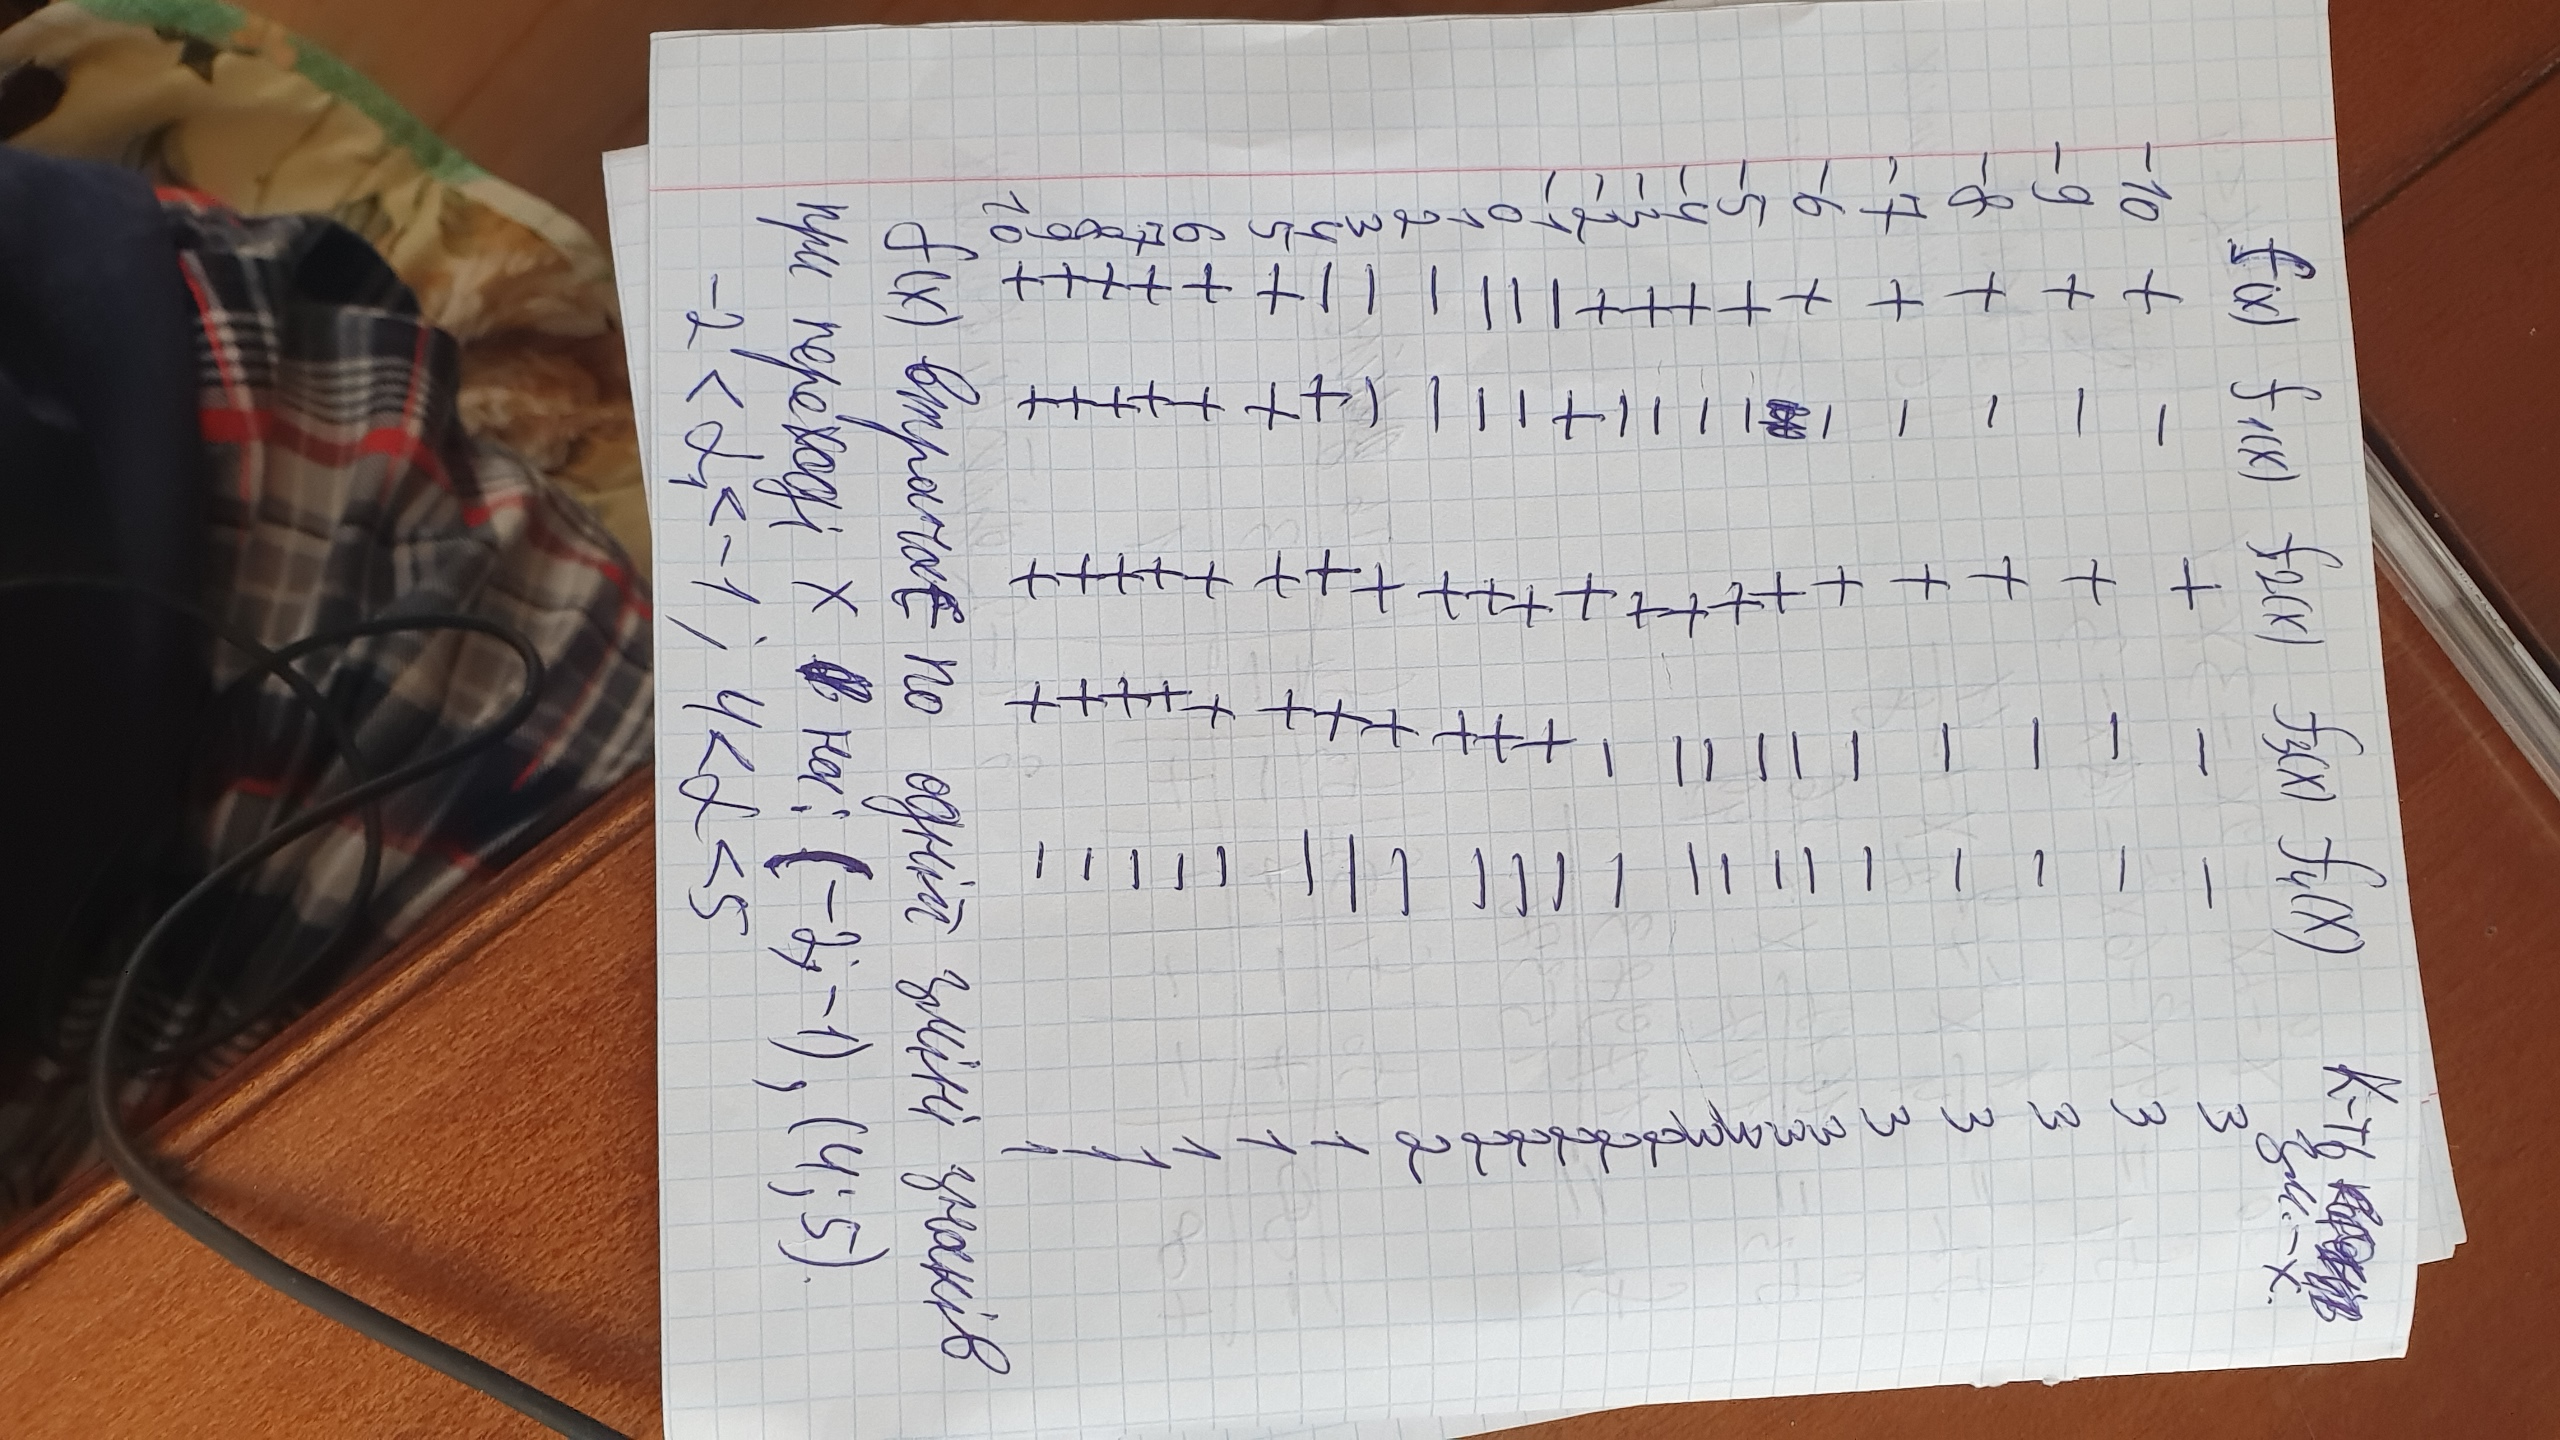 f(x) f1(x) f2(x) f3(x) f4(x) К-ть змі-х.
-10 + - + - - 3
-9 + - + - - 3
-8 + - + - - 3
-7 + - + - - 3
-6 + - + - - 3
-5 + - + - - 3
-4 + - + - - 3
-3 + - + - - 3
-2 + - + - - 3
-1 - + + - - 2
0 - - + + - 2
1 - - + + - 2
2 - - + + - 2
3 - - + + - 2
4 - + + + - 2
5 + + + + - 1
6 + + + + - 1
7 + + + + - 1
8 + + + + - 1
9 + + + + - 1
10 + + + + - 1
f(x) втрачає по одній зміні знаків
при переході x на: (-2; -1), (4; 5).
-2 < α1 < -1; 4 < α < 5